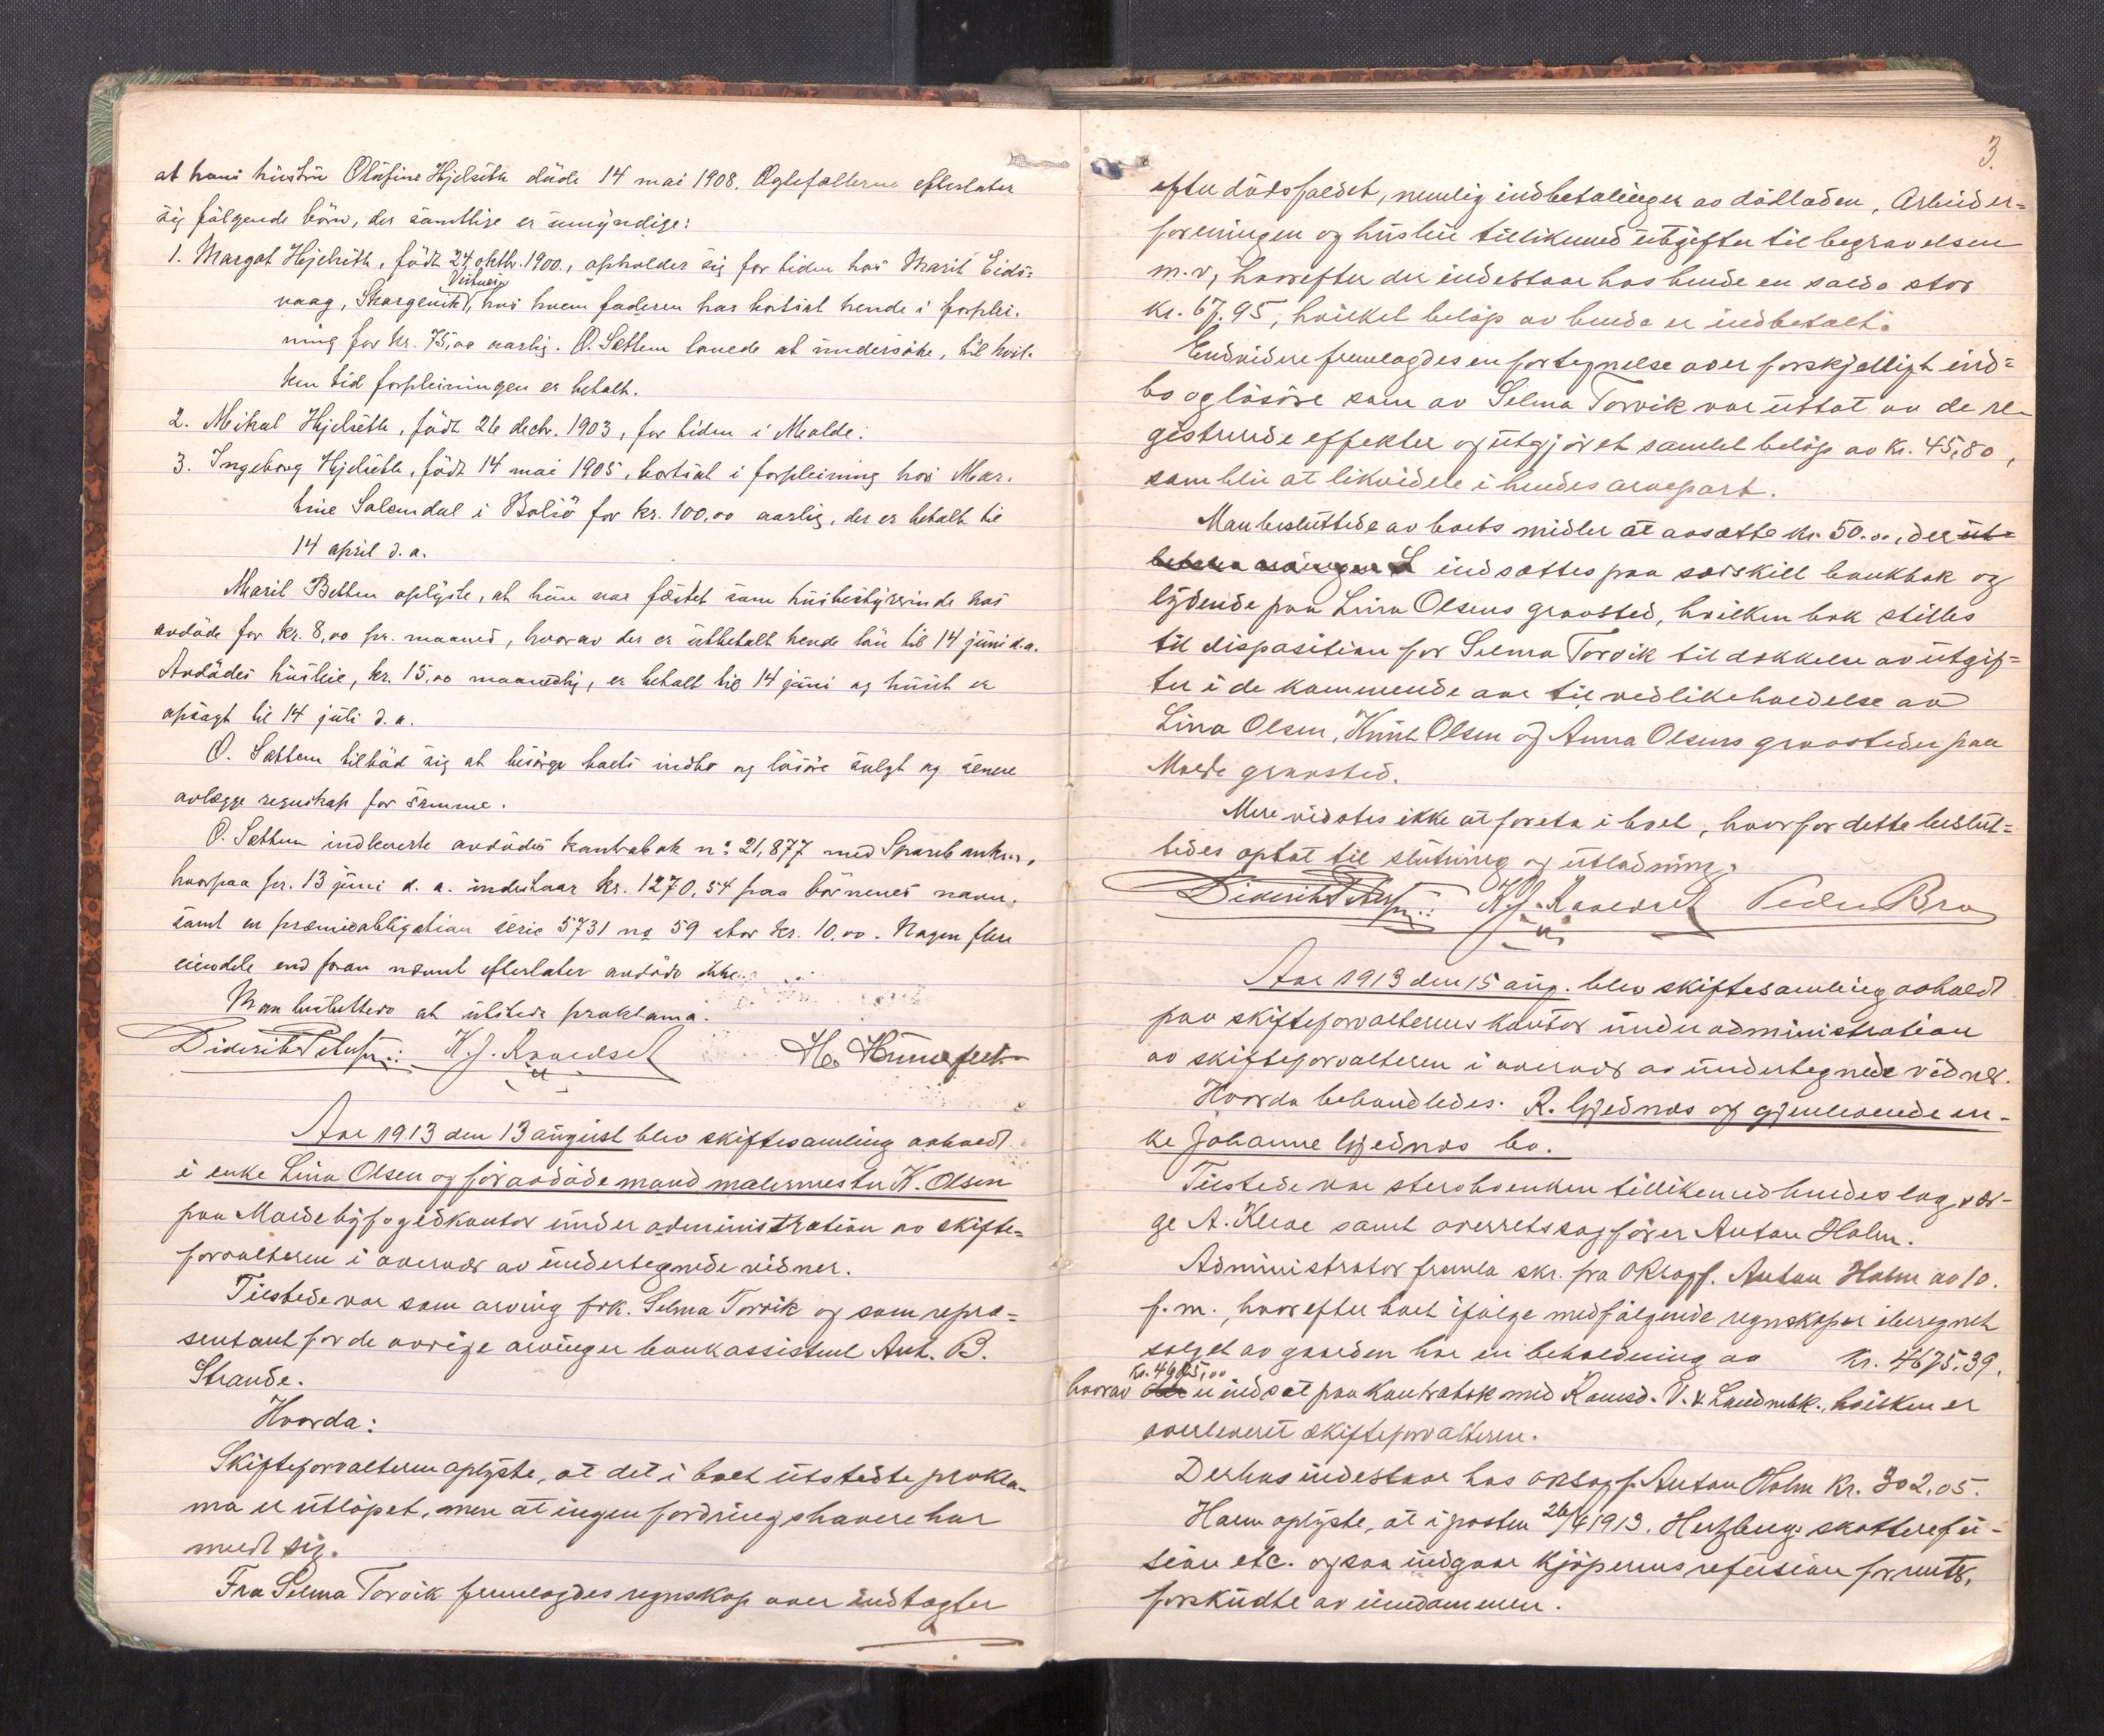 at hans hustru Oläfine Hjelseth döde 14 mai 1908. Egtefællerne efterlater
sig fölgende börn, der samtlige er umyndige:
1. Margot Hjelseth, född 24 oktbr. 1900, opholder sig for tiden hos Marit Eids-
vaag, Skorgenvik, Vistnæs, hos hvem faderen har bortsat hende i forplei-
ning for kr. 75,00 aarlig. O. Sættem lovede at undersöke, til hvil-
ken tid forpleiningen er betalt.
2. Meikal Hjelseth, född 26 decbr. 1903, for tiden i Molde.
3. Ingeborg Hjelseth, född 14 mai 1905, bortsat i forpleining hos Mar-
tine Solemdal i Bolsö for kr. 100,00 aarlig, der er betalt til
14 april d.a.
Marit Betten oplyste, at hun var fæstet som husbestyrerinde hos
avdöde for kr. 8,00 pr. maaned, hvorav der er utbetalt hende lön til 14 juni d.a.
Avdödes husleie, kr. 15,00 maanedlig, er betalt til 14 juni og huset er
opsagt til 14 juli d.a.
O. Sættem tilböd sig at besörge boets indbo og lösöre solgt og senere
avlægge regnskap for samme.
O. Sættem indleverte avdödes kontrabok no: 21,877 med Sparebanken,
hvorpaa pr. 13 juni d.a. indestaar kr. 1270,54 paa börnenes navn,
samt en præmieobligation serie 5731 no 59 stor kr. 10,00. Nogen flere
eiendele end foran nævnt efterlater avdöde ikke.
Man besluttede at utstede proklama.
K. J. Roaldset
Aar 1913 den 13 august blev skiftesamling avholdt
i enke Lina Olsen og föravdöde mand malermester K. Olsen
paa Molde byfogedkontor under administration av skifte-
forvalteren i overvær av undertegnede vidner.
Tilstede var som arving frk. Selma Torvik og som repræ-
sentant for de övrige arvinger bankassistent Ant. B.
Strande.
Hvorda:
Skifteforvalteren oplyste, at det i boet utstedte prokla-
ma er utlöpet, men at ingen fordringshavere har
meldt sig.
Fra Selma Torvik fremlagdes regnskap over indtægter
3.
efter dödsfaldet, nemlig indbetalinger av dödladen, Arbeider-
foreningen og husleie tillikemed utgifter til begravelsen
m.v, hvorefter der indestaar hos hende en saldo stor
kr. 67,95, hvilket belöp av hende er indbetalt.
Endvidere fremlagdes en fortegnelse over forskjelligt ind-
bo og lösöre som av Selma Torvik var uttat av de re-
gistrerede effekter og utgjör et samlet belöp av kr. 45,80,
som blir at likvidere i hendes arvepart.
Man besluttede av boets midler at avsætte kr. 50.00, der ut-
indsættes paa særskilt bankbok og
lydende paa Lina Olsens gravsted, hvilken bok stilles
til disposition for Selma Torvik til dækkelse av utgif-
ter i de kommende aar til vedlikeholdelse av
Lina Olsen, Knut Olsen og Anna Olsens gravsteder paa
Molde gravsted.
Mere vidstes ikke at foreta i boet, hvorfor dette beslut-
tedes optat til slutning og utlodning.
K. J. Roaldset Peder Bro
Aar 1913 den 15 aug. blev skiftesamling avholdt
paa skifteforvalterens kontor under administration
av skifteforvalteren i overvær av undertegnede vidner.
Hvorda behandledes. R. Gjednæs og gjenlevende en-
ke Johanne Gjednæs bo.
Tilstede var sterboenken tillikemed hendes lagvær-
ge A. Kleve samt overretssagförer Anton Holm.
Administrator fremla skr. fra ORsagf. Anton Holm av 10.
f.m., hvorefter boet ifölge medfölgende regnskaper iberegnet
salget av gaarden har en beholdning av kr. 4675.39.
hvorav kr. 4605,00 er indsat paa kontrabok med Romsd. V. & Landmbk., hvilken er
overleveret skifteforvalteren.
Derhos indestaar hos ORsagf. Anton Holm kr. 302.05.
Holm oplyste, at i posten 26/6 1913. Hertzbergs skatterefu-
sion etc. ogsaa indgaar kjöperens refusion for rente,
forskudte av eiendommen.